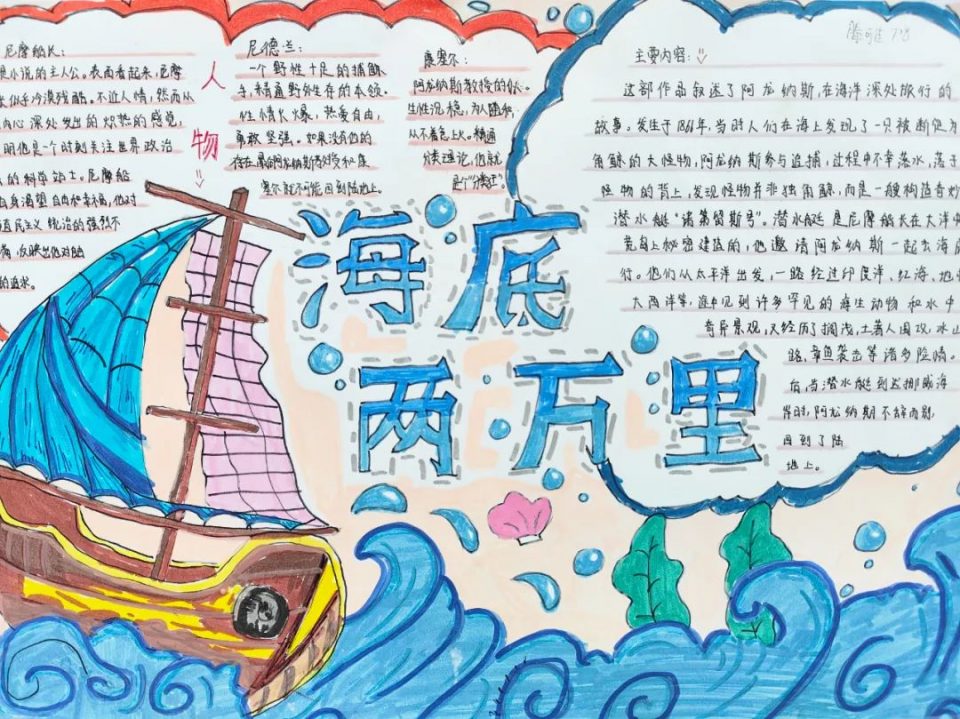 尼摩船长：
是小说的主人公。表面看起来，尼摩
似乎冷漠残酷。不近人情，然而从
内心深处发出的炽热的感觉，
明他是一个时刻关注世界政治
的科学动士。尼摩船
自身渴望自由和幸福，他对
殖民主义统治的强烈不
满，反映出他对
的追求。
人
物
尼德兰：
一个野性十足的捕鲸
手，精通野外生存的本领。
性情火爆，热爱自由，
勇敢坚强。如果没有他的
存在，最后阿龙纳斯教授和康
塞尔就不可能回到陆地上。
康塞尔：
阿龙纳斯教授的仆
生性沉稳，为人随和，
从不着急上火。精通
分类理论，他就
是个“分类迷”。
主要内容：
这部作品叙述了阿龙纳斯，在海洋深处旅行的
故事。发生于1866年，当时人们在海上发现了一只被断他为
角鲸的大怪物，阿龙纳斯参与追捕，过程中不幸落水，落于
怪物的背上，发现怪物并非独角鲸，而是一艘构造奇妙
潜水艇“诺第留斯号”。潜水艇是尼摩船长在大洋中
荒岛上秘密建造的，他邀请阿龙纳斯一起去海底
行。他们从太平洋出发，一路经过印度洋、红海、地中
大西洋等，途中见到许多罕见的海生动物和水中
奇异景观，又经历了搁浅，土著人围攻，冰山
路，章鱼袭击等诸多险情。
后，当潜水艇到达挪威海
岸时，阿龙纳斯不辞而别
回到了陆
地上。
海底
两万里